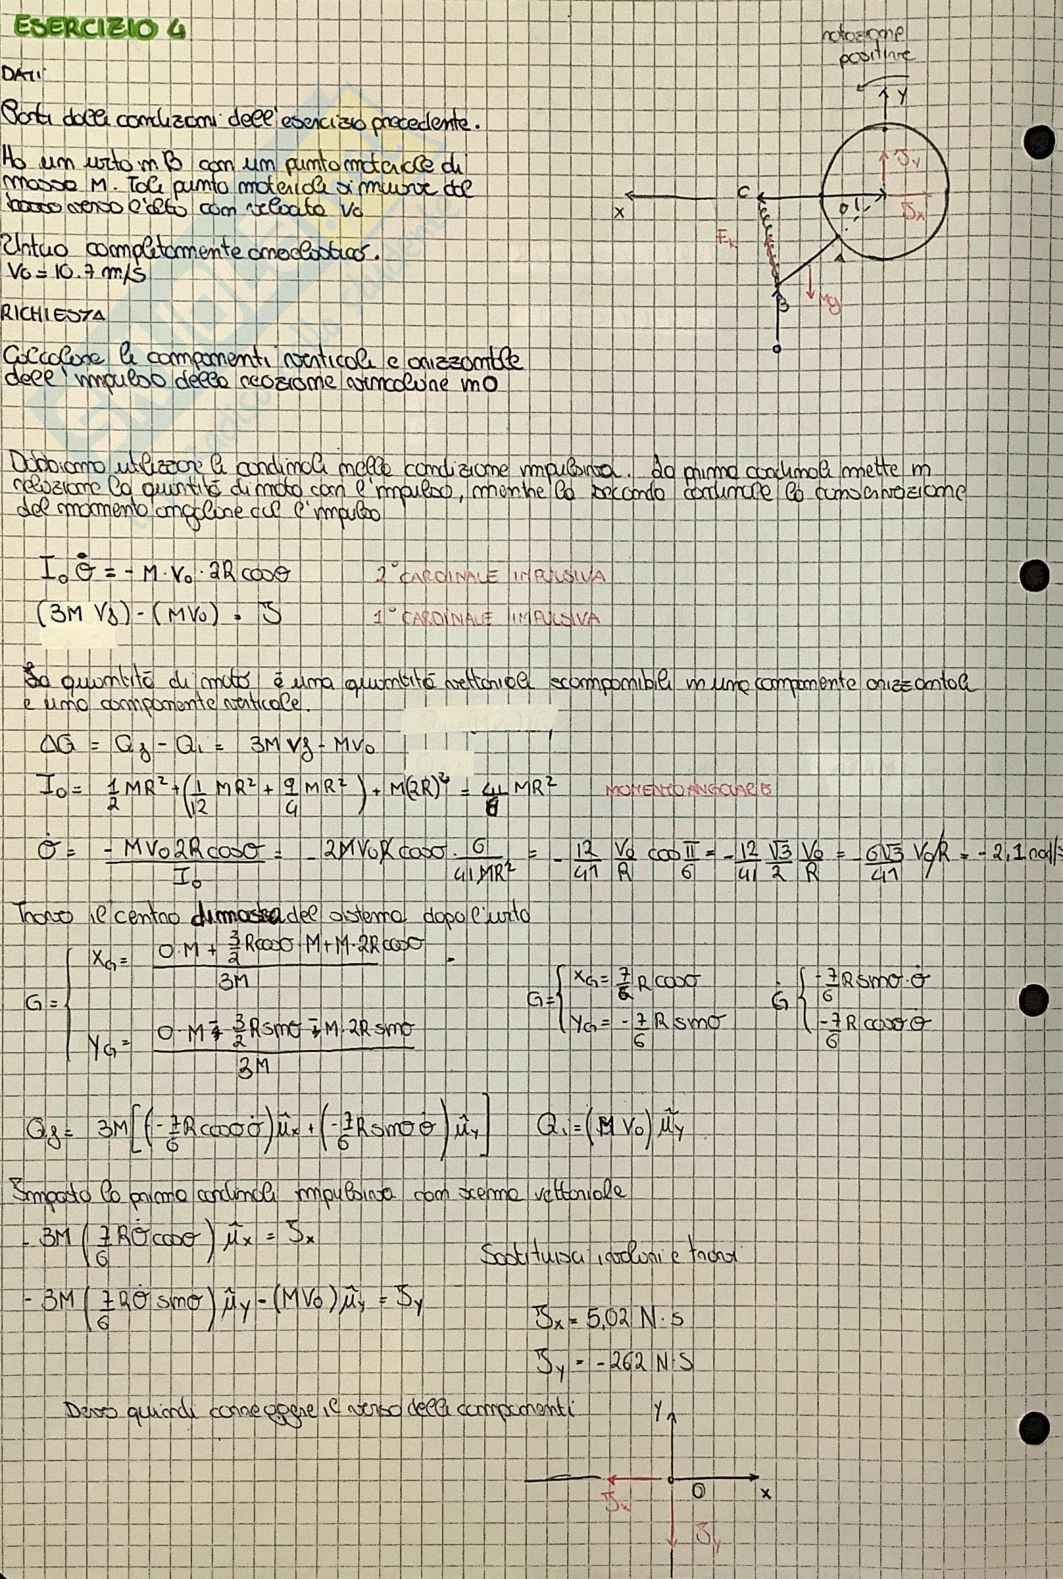 ESERCIZIO 4
rotazione
positiva
DATI:
Parti dalle condizioni dell'esercizio precedente.
Ho un urto in B con un punto materiale di
massa M. Tale punto materiale si muove dal
basso verso l'alto con velocità V0
Urtuo completamente anelastico.
V0 = 10.7 m/s
Y
Jy
X
C
O
Jx
Fk
A
Mg
B
RICHIESTA
Calcolare le componenti verticale e orizzontale
dell'impulso della reazione vincolare in O
Dobbiamo utilizzare le cardinali nella condizione impulsiva. La prima cardinale mette in
relazione la quantità di moto con l'impulso, mentre la seconda cardinale la conservazione
del momento angolare col l'impulso
I₀ θ̇ = - M · V₀ · 2R cosθ 2° CARDINALE IMPULSIVA
(3M Vf) - (MV₀) = J 1° CARDINALE IMPULSIVA
La quantità di moto è una quantità vettoriale scomponibile in una componente orizzontale
e una componente verticale.
ΔQ = Qf - Qi = 3M Vf - MV₀
I₀ = 1/2 MR² + (1/12 MR² + 9/4 MR²) + M(2R)² = 41/6 MR² MOMENTO ANGOLARE
θ̇ = - MV₀ 2R cosθ / I₀ = - 2MV₀R cosθ · 6/41MR² = - 12/41 V₀/R cos π/6 = - 12/41 √3/2 V₀/R = - 6√3/41 V₀/R = - 2,1 rad/s
Trovo il centro di massa del sistema dopo l'urto
G = { XG = (0·M + 3/2 R cosθ · M + M · 2R cosθ) / 3M
YG = (0·M - 3/2 R sinθ - M · 2R sinθ) / 3M
G = { XG = 7/6 R cosθ
YG = - 7/6 R sinθ
Ġ { - 7/6 R sinθ · θ̇
- 7/6 R cosθ θ̇
Qf = 3M [(- 7/6 R cosθ θ̇) ûx + (- 7/6 R sinθ θ̇) ûy] Qi = (M V₀) ûy
Imposto la prima cardinale impulsiva con schema vettoriale
- 3M (7/6 R θ̇ cosθ) ûx = Jx
- 3M (7/6 R θ̇ sinθ) ûy - (MV₀) ûy = Jy
Sostituisci i valori e trovi
Jx = 5,02 N·s
Jy = - 262 N·S
Devo quindi correggere il verso delle componenti
Y
Jx
O
X
Jy